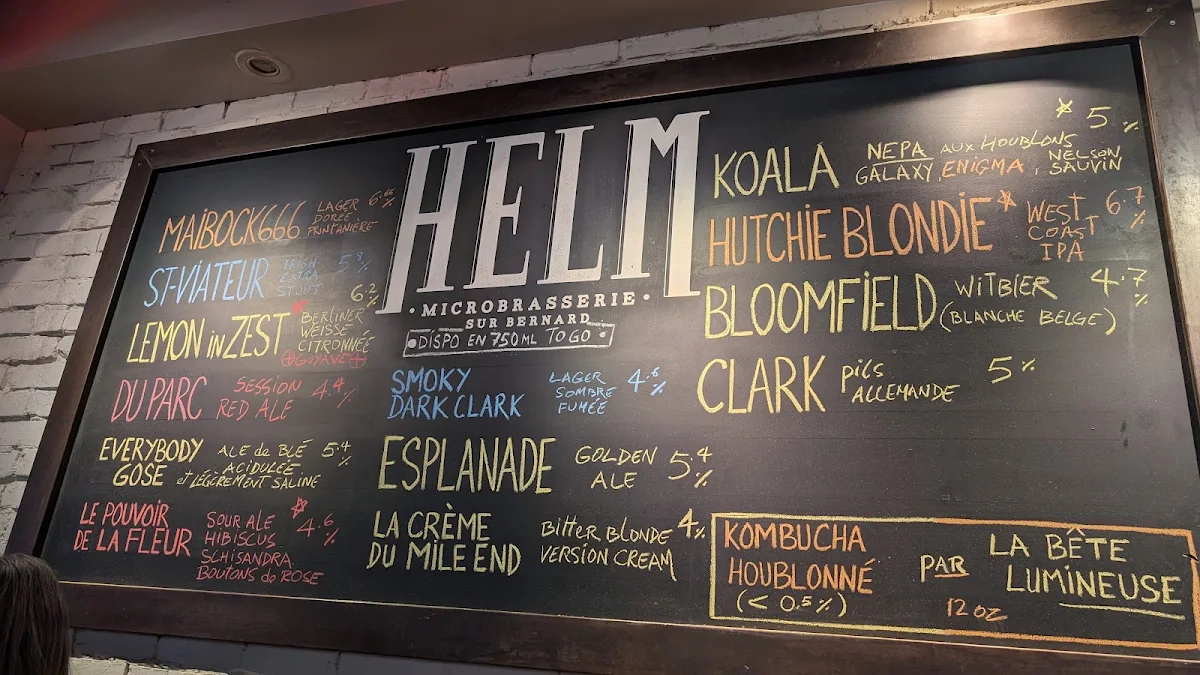 MAIBOCK666 LAGER 6.66
DORÉE %
PRINTANIÈRE
ST-VIATEUR IRISH 5.8
EXTRA %
STOUT
LEMON in ZEST BERLINER 6.2
WEISSE %
CITRONNÉE
GOYAVE
DU PARC SESSION 4.4
RED ALE %
EVERYBODY ALE de BLÉ 5.4
GOSE ACIDULÉE %
et LÉGÈREMENT SALINE
LE POUVOIR SOUR ALE 4.6
DE LA FLEUR HIBISCUS %
SCHISANDRA
BOUTONS de ROSE
HELM
· MICROBRASSERIE ·
SUR BERNARD
• DISPO EN 750ML TO GO •
SMOKY LAGER 4.6
DARK CLARK SOMBRE %
FUMÉE
ESPLANADE GOLDEN 5.4
ALE %
LA CRÈME BITTER BLONDE 4%
DU MILE END VERSION CREAM
KOALA NEPA AUX HOUBLONS 5%
GALAXY, ENIGMA, NELSON
SAUVIN
HUTCHIE BLONDIE WEST 6.7
COAST %
IPA
BLOOMFIELD WITBIER 4.7
(BLANCHE BELGE) %
CLARK PILS 5%
ALLEMANDE
KOMBUCHA LA BÊTE
HOUBLONNÉ PAR LUMINEUSE
(< 0.5%) 12 OZ